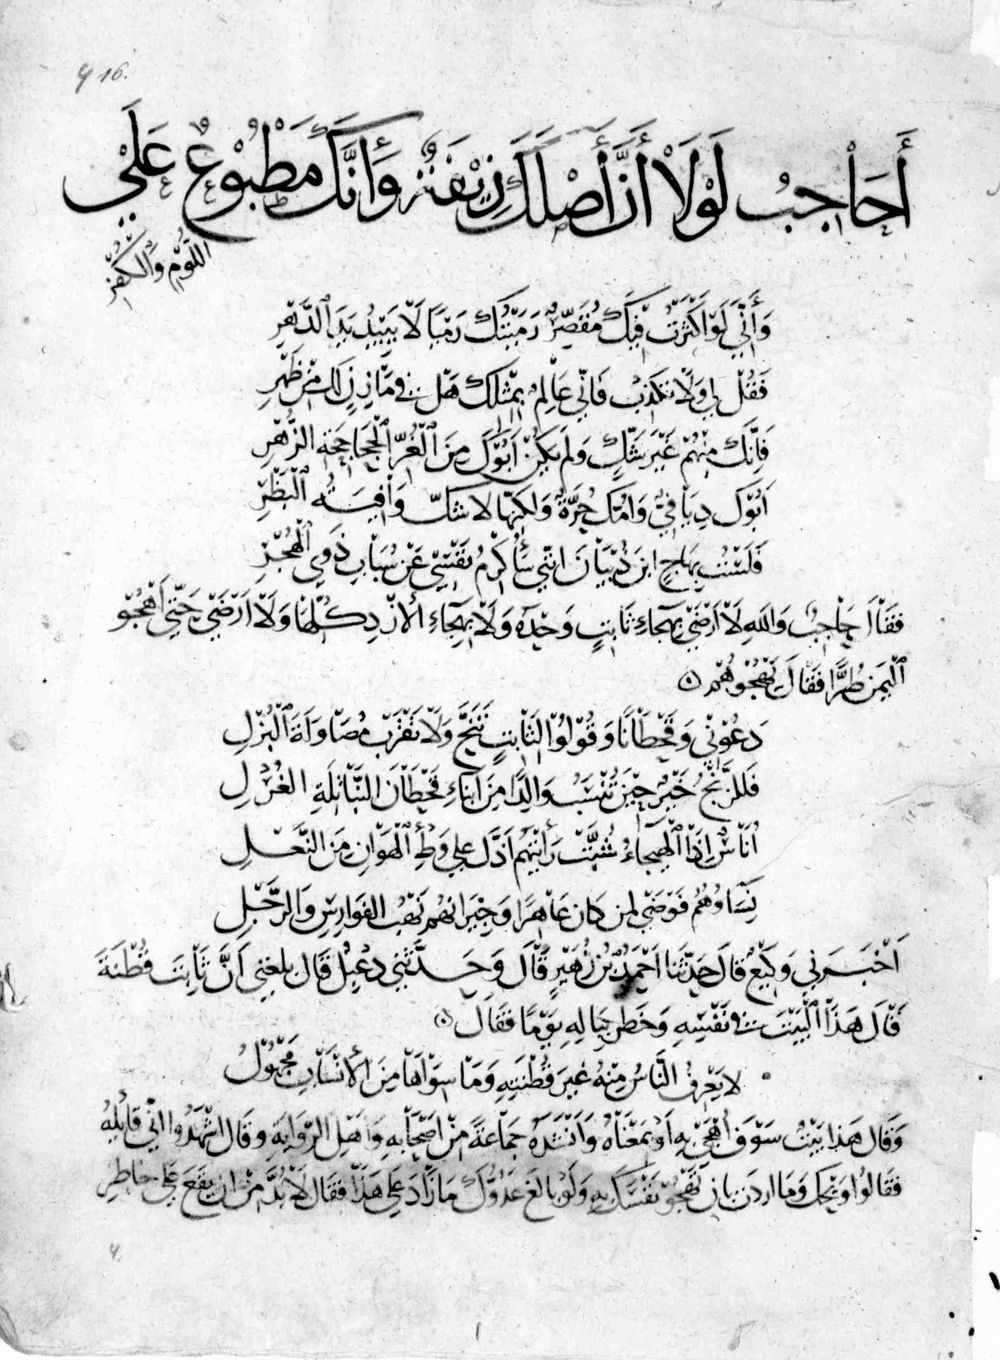 416.
أَحَاجِبُ لَوْلَا أَنَّ أَصْلَكَ زِيْفَةٌ وَأَنَّكَ مَطْبُوْعٌ عَلَى
اللُّوْمِ وَالكُفْرِ
وَأَنِّي لَوْ أَكْثَرْتُ فِيْكَ مُقَصِّرٌ رَمَيْتُكَ رَمْيًا لَا يَبِيْدُ يَدَ الدَّهْرِ
فَقُلْ لِي وَلَا تَكْذِبْ فَإِنِّي عَالِمٌ بِمِثْلِكَ هَلْ فِي مَازِنٍ لَكَ مِنْ ظَهْرِ
فَإِنَّكَ مِنْهُمْ غَيْرَ شَكٍّ وَلَمْ يَكُنْ أَبُوْكَ مِنَ الْغُرِّ الْجَحَاجِحَةِ الزُّهْرِ
أَبُوْكَ دِيَافِيٌّ وَأُمُّكَ حُرَّةٌ وَلَكِنَّهَا لَا شَكَّ وَافِيَةُ الْبَظْرِ
فَلَسْتُ بِهَاجٍ ابْنَ ذُبْيَانَ إِنَّنِي سَأُكْرِمُ نَفْسِي عَنْ سِبَابِ ذَوِي الْهُجْرِ
فَقَالَ حَاجِبٌ وَاللهِ لَا أَرْضَى بِهِجَاءِ ثَابِتٍ وَحْدَهُ وَلَا بِهِجَاءِ الْأَزْدِ كُلِّهَا وَلَا أَرْضَى حَتَّى أَهْجُوَ
الْيَمَنَ طُرًّا فَقَالَ يَهْجُوهُمْ ٥
دَعُوْنِي وَقَحْطَانًا وَقُوْلُوْا لِثَابِتٍ تَنَحَّ وَلَا تَقْرَبْ مُصَاوَلَةَ الْبُزْلِ
فَلَلزَّنْجُ خَيْرٌ حِيْنَ تُنْسَبُ وَالِدًا مِنَ أَبْنَاءِ قَحْطَانَ النَّبَابِلَةِ الغُزْلِ
أُنَاسٌ إِذَا الْهَيْجَاءُ شُبَّتْ رَأَيْتَهُمْ أَذَلَّ عَلَى وَطْءِ الْهَوَانِ مِنَ النَّعْلِ
نِسَاؤُهُمْ فَوْضَى لِمَنْ كَانَ عَاهِرًا وَجِيرَانُهُمْ نَهْبُ الفَوَارِسِ وَالرَّجْلِ
أَخْبَرَنِي وَكِيْعٌ قَالَ حَدَّثَنَا أَحْمَدُ بْنُ زُهَيْرٍ قَالَ وَحَدَّثَنِي دِعْبِلٌ قَالَ بَلَغَنِي أَنَّ ثَابِتَ قُطْنَةَ
قَالَ هَذَا الْبَيْتَ فِي نَفْسِهِ وَخَطَرَ بِبَالِهِ يَوْمًا فَقَالَ ٥
لَا يَعْرِفُ النَّاسُ مِنْهُ غَيْرَ قُطْنَتِهِ وَمَا سِوَاهَا مِنَ الْأَنْسَابِ مَجْهُوْلُ
وَقَالَ هَذَا بَيْتٌ سَوْفَ أُهْجَى بِهِ أَوْ بِمَعْنَاهُ وَأَنْشَدَهُ جَمَاعَةً مِنْ أَصْحَابِهِ وَأَهْلِ الرِّوَايَةِ وَقَالَ اشْهَدُوا أَنِّي قَائِلُهُ
فَقَالُوا وَيْحَكَ وَمَا أَرَدْتَ بِأَنْ تَهْجُوَ نَفْسَكَ بِهِ وَلَوْ بَالَغَ عَدُوُّكَ مَا زَادَ عَلَى هَذَا فَقَالَ لَا بُدَّ مِنْ أَنْ يَقَعَ عَلَى خَاطِرِ